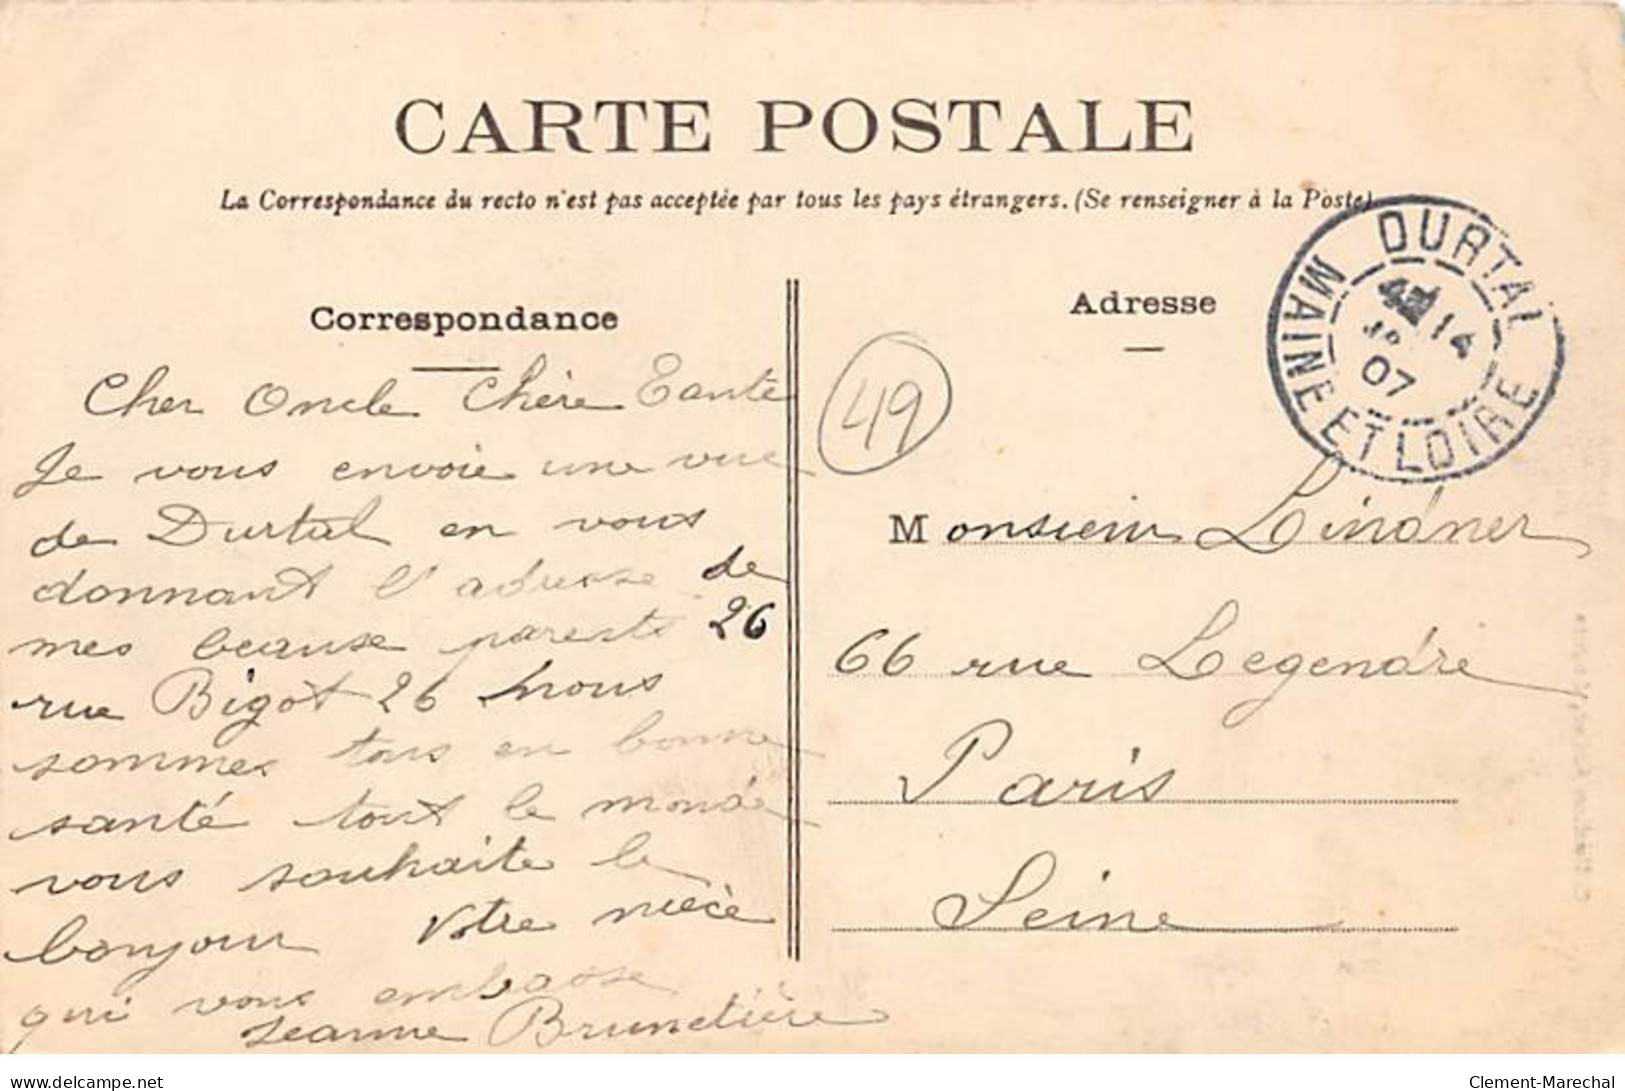 CARTE POSTALE
La Correspondance du recto n'est pas acceptée par tous les pays étrangers. (Se renseigner à la Poste)
Correspondance
Cher Oncle Chère Tante
Je vous envoie une vue
de Durtal en vous
donnant l'adresse de
mes beause parents 26
rue Bigot 26 nous
sommes tous en bonne
santé tout le monde
vous souhaite le
bonjour Votre nièce
qui vous embrasse
Jeanne Brunetière
49
Adresse
DURTAL
14
07
MAINE ET LOIRE
Monsieur Lindner
66 rue Legendre
Paris
Seine
www.delcampe.net
Clement-Marechal